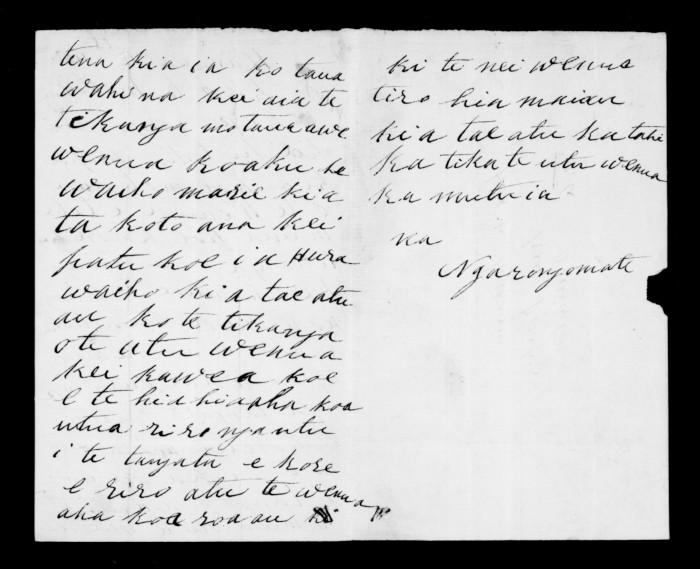 tena kia ia ko taua
wahi na kei aia te
tikanga mo taua awe
wenua koaku he
waiho marie kia
ta koto ana kei
patu koe i a Hura
waiho kia tae atu
au ko te tikanga
o te utu wenua
kei kawea koe
e te hiahia koa
utua riro ngautu
i te tangata e kore
e riro atu te wenua
aha koa roa au
ki te nei wenua
tiro hia maiau
kia tae atu ka tahi
ka tika te utu wenua
ka mutu ia
na
Ngarongomate